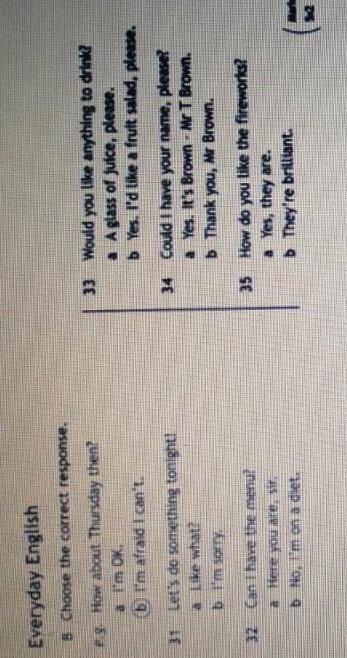 Everyday English
B Choose the correct response.
e.g. How about Thursday then?
a I'm OK.
b I'm afraid I can't.
31 Let's do something tonight!
a Like what?
b I'm sorry.
32 Can I have the menu?
a Here you are, sir.
b No, I'm on a diet.
33 Would you like anything to drink?
a A glass of juice, please.
b Yes. I'd like a fruit salad, please.
34 Could I have your name, please?
a Yes. It's Brown - Mr T Brown.
b Thank you, Mr Brown.
35 How do you like the fireworks?
a Yes, they are.
b They're brilliant.
5x2